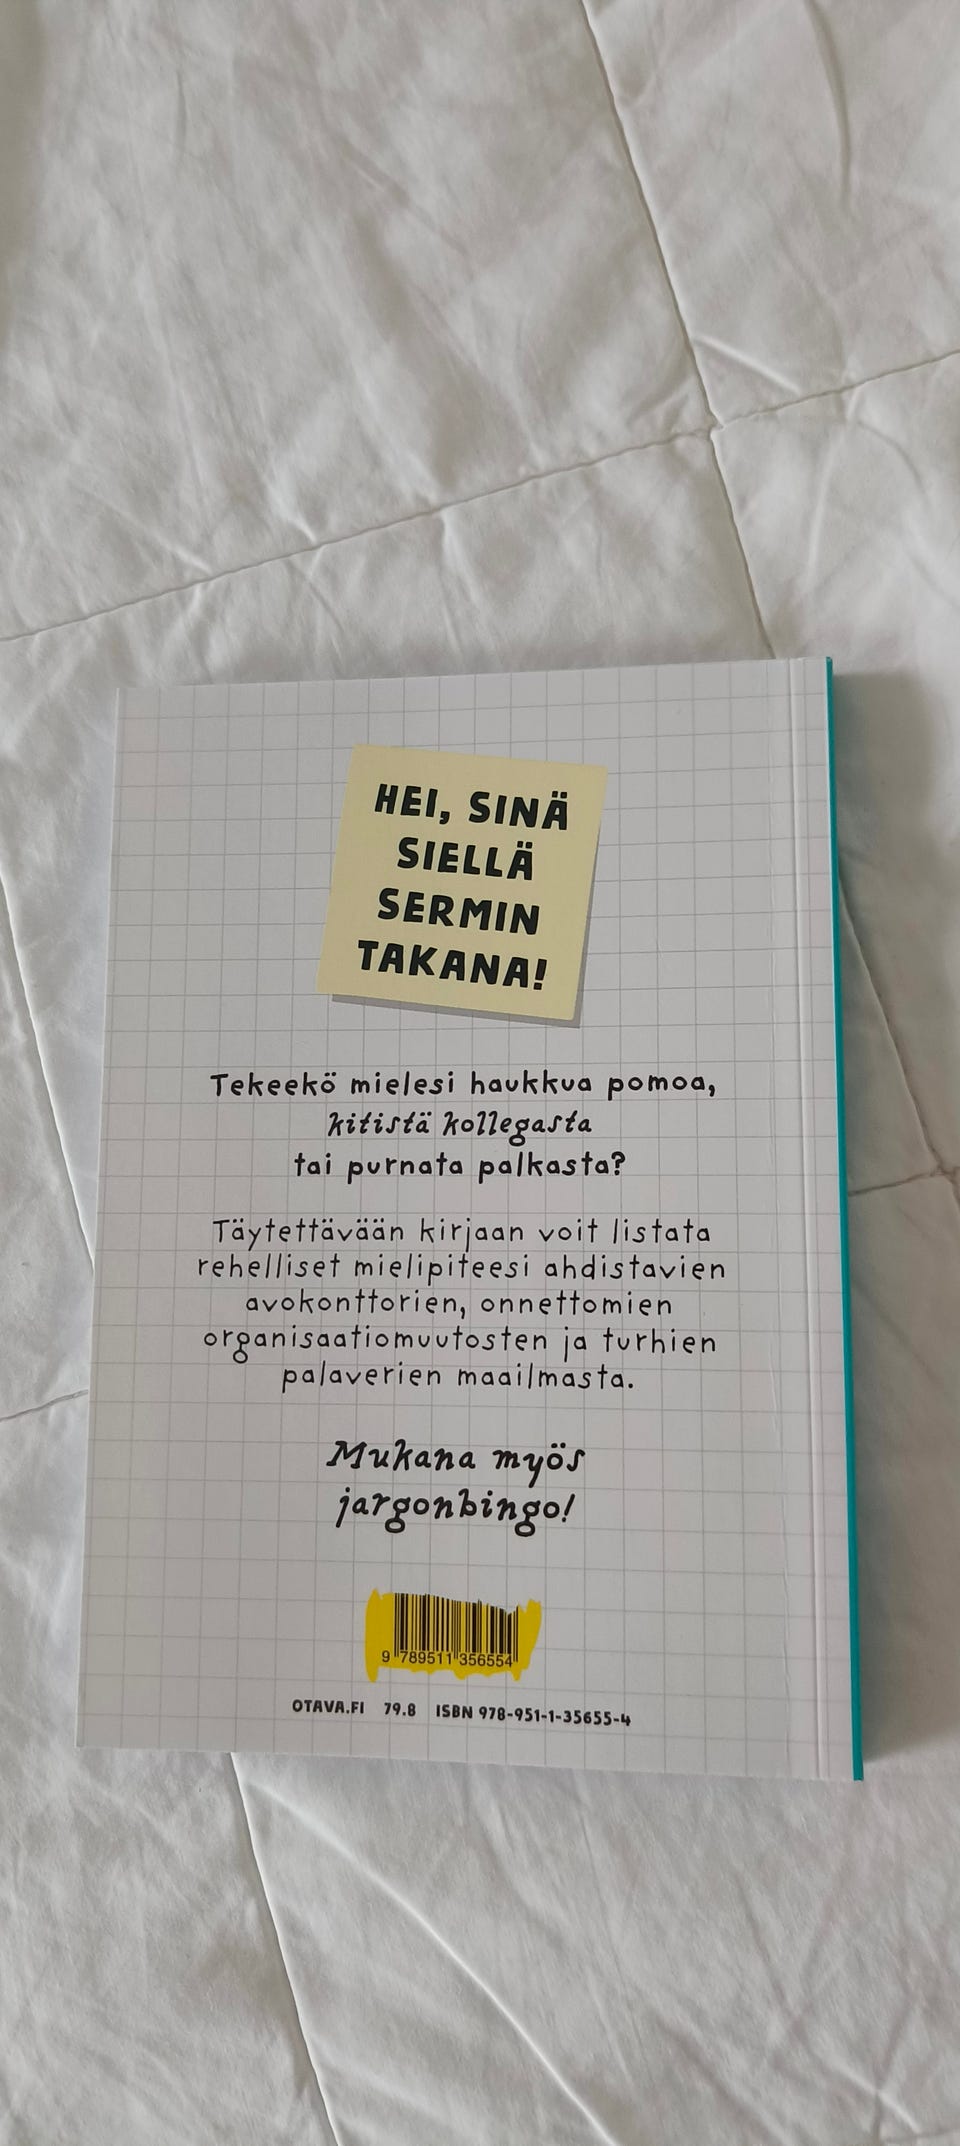 HEI, SINÄ
SIELLÄ
SERMIN
TAKANA!
Tekeekö mielesi haukkua pomoa,
kitistä kollegasta
tai purnata palkasta?
Täytettävään kirjaan voit listata
rehelliset mielipiteesi ahdistavien
avokonttorien, onnettomien
organisaatiomuutosten ja turhien
palaverien maailmasta.
Mukana myös
jargonbingo!
9 789511 356554
OTAVA.FI 79.8 ISBN 978-951-1-35655-4